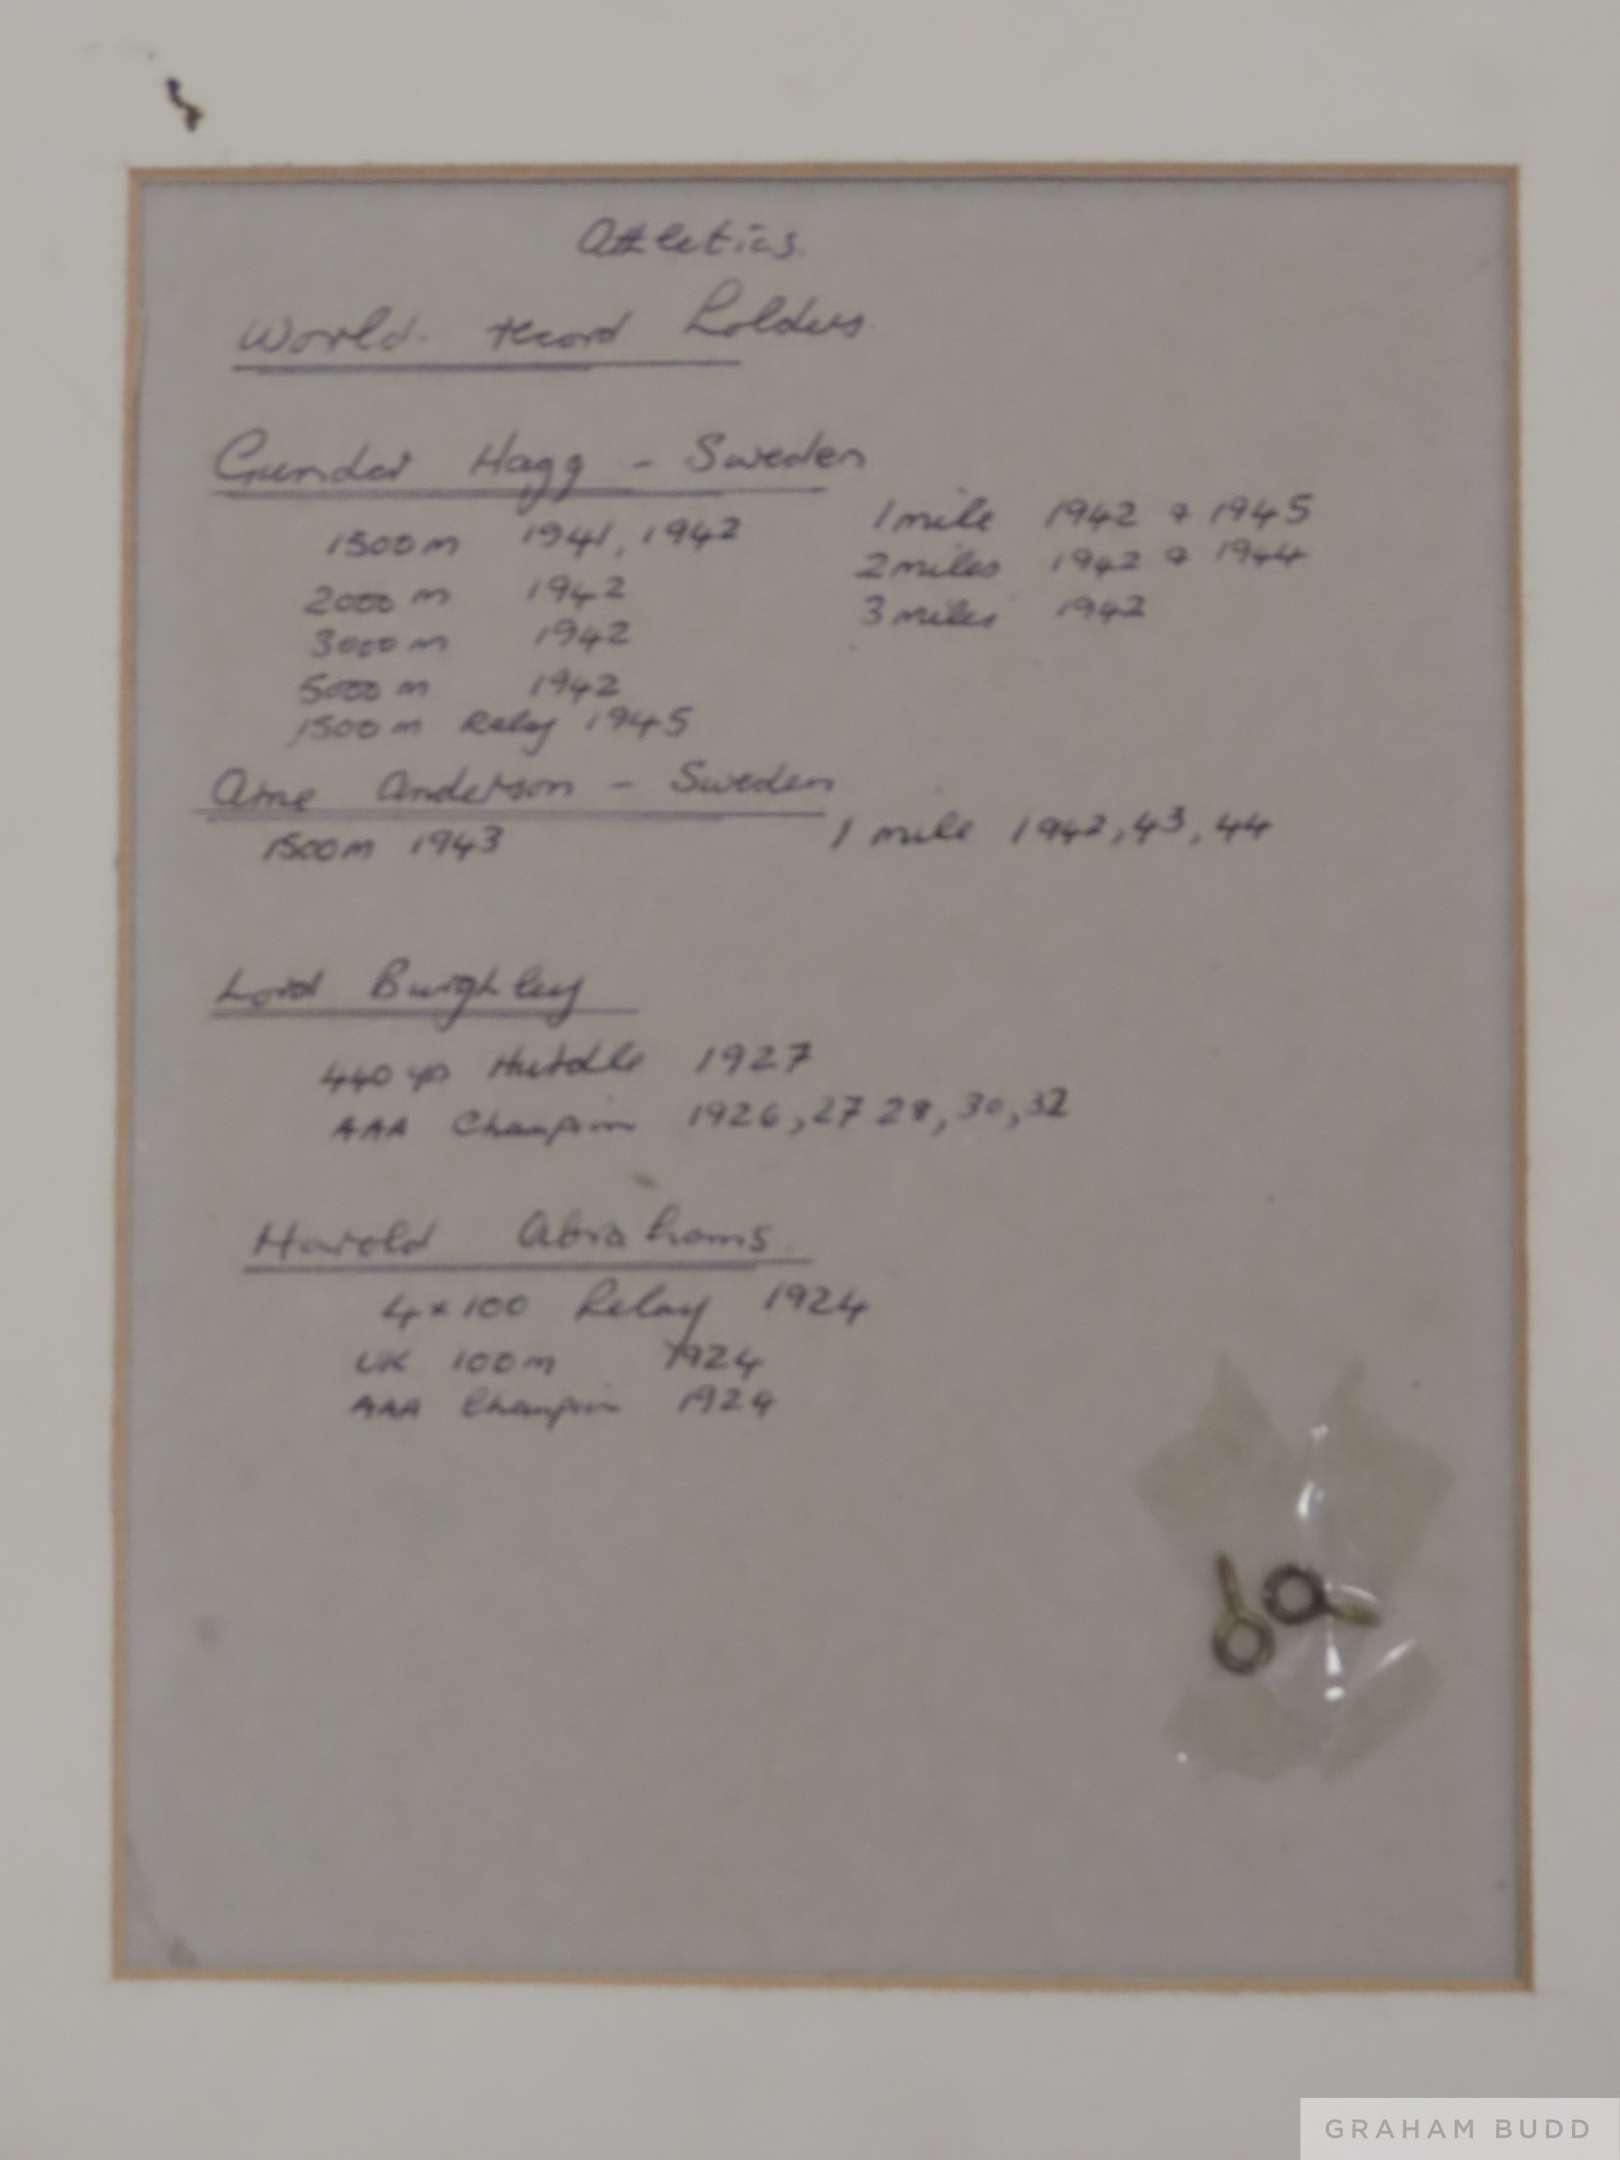 Athletics.
World record holders
Gunder Hagg - Sweden
1500m 1941, 1942
2000m 1942
3000m 1942
5000m 1942
1500m Relay 1945
1 mile 1942 & 1945
2 miles 1942 & 1944
3 miles 1942
Arne Anderson - Sweden
1500m 1943
1 mile 1942, 43, 44
Lord Burghley
440 yd Hurdle 1927
AAA Champion 1926, 27 28, 30, 32
Harold Abrahams.
4x100 Relay 1924
UK 100m 1924
AAA Champion 1924
GRAHAM BUDD